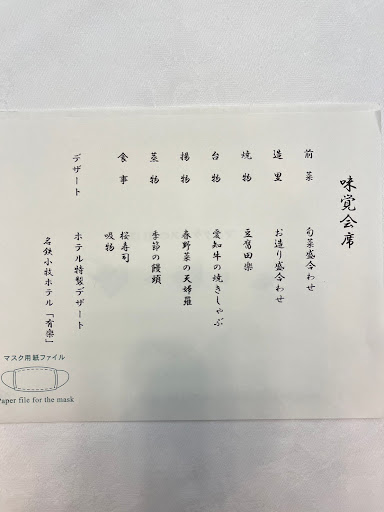 味覚会席
前菜 旬菜盛合わせ
造里 お造り盛合わせ
焼物 豆腐田楽
台物 愛知牛の焼きしゃぶ
揚物 春野菜の天婦羅
蒸物 季節の饅頭
食事 桜寿司
吸物
デザート ホテル特製デザート
名鉄小牧ホテル「有楽」
マスク用紙ファイル
Paper file for the mask